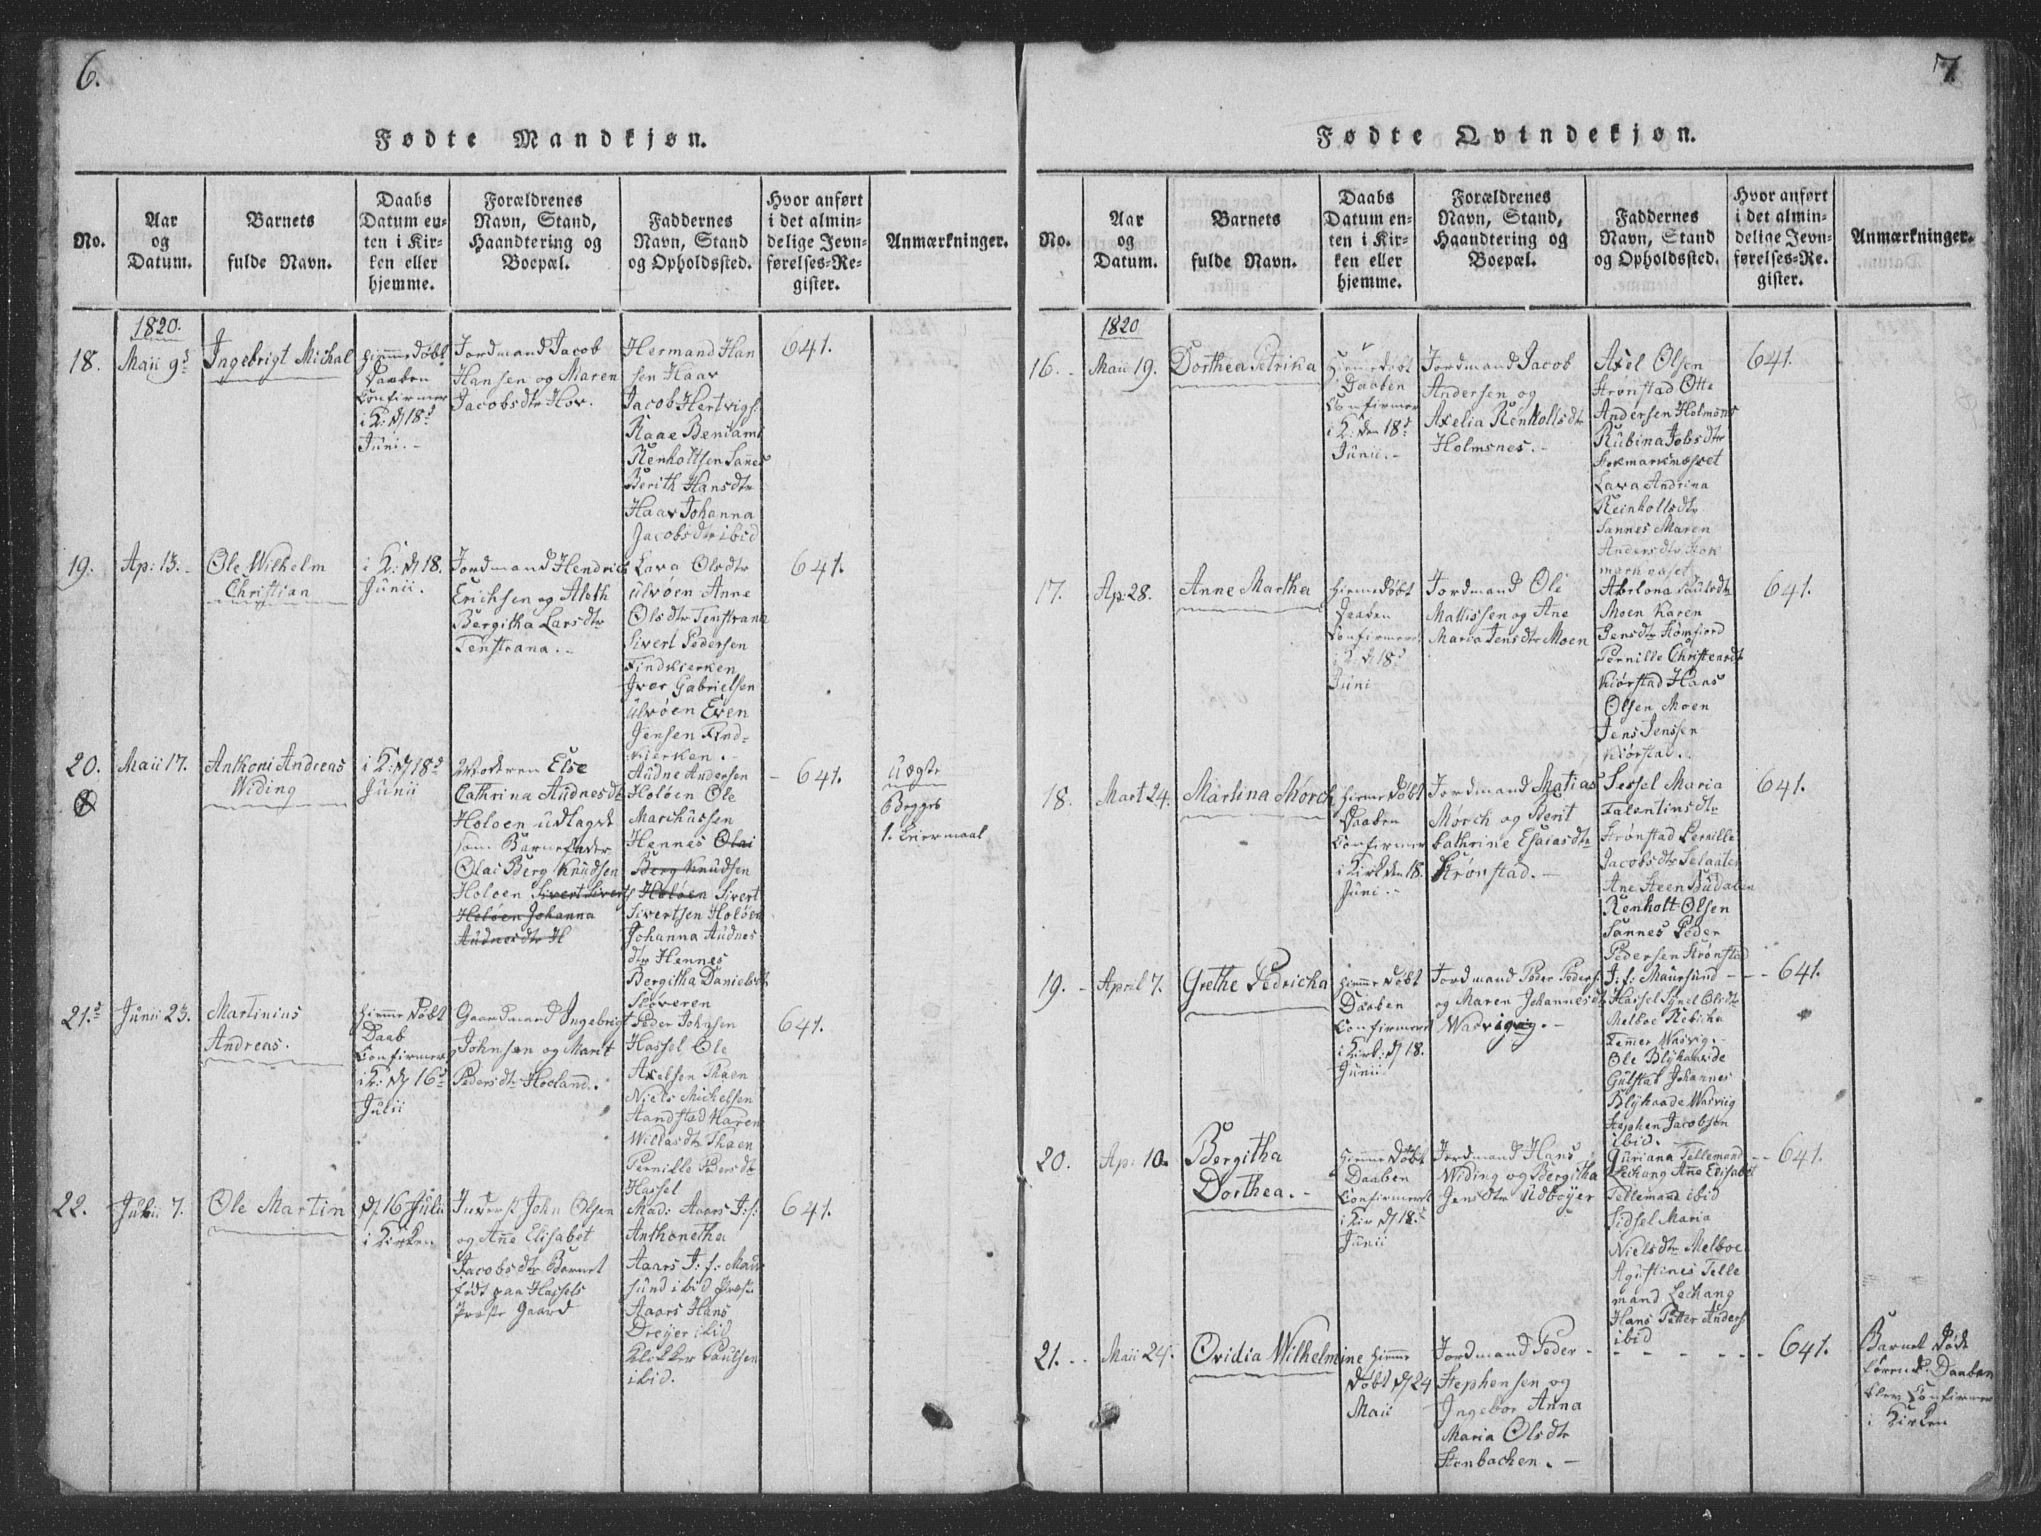 6.
Fødte Mandkjøn.
No.
Aar
og
Datum.
Barnets
fulde Navn.
Daabs
Datum en-
ten i Kir-
ken eller
hjemme.
Forældrenes
Navn, Stand,
Haandtering og
Boepæl.
Faddernes
Navn, Stand
og Opholdssted.
Hvor anført
i det almin-
delige Jevn-
førelses-Re-
gister.
Anmærkninger.
1820.
18.
Maii 9
Ingebrigt Michal
hiemmedøbt
Daaben
Confirmer
i K: d 18
Juni.
Jordmand Jacob
Hansen og Maren
Jacobsdtr Hov.
Hermand Han
sen Haav
Jacob Hertvigs.
Raae Beniami
Renholtsen Sannes
Berith Hansdtr
Haav Johanna
Jacobsdtr ibid
641.
19.
Ap: 13.
Ole Wilhelm
Christian
i K: d 18.
Junii.
Jordmand Hendrich
Erichsen og Aleth
Bergitha Larsdtr
Tenstrana.
Lava Olsdtr
Ulvøen Anne
Olsdtr Tenstrana
Sivert Pedersen
Findkierken
Iver Gabrielsen
Ulvøen Even
Jensen Find-
kierken.
641.
20.
Maii 17.
Anthoni Andreas
Widing
i K: d 18
Junii
Moderen Else
Cathrina Audnesdtr
Holøen udlagde
som Barnefader
Olai Berg Knudsen
Holøen Sivert Siverts
Holøen Johanna
Audnesdtr H
Audne Andersen
Holøen Ole
Marchussen
Hennes Olai
Berg Knudsen
Holøen Sivert
Sivertsen Holøen
Johanna Audnes
dtr Hennes
Bergitha Danielsdt
Skoveren
641.
Uægte
Begges
1. Leiermaal
21.
Junii 23.
Martinius
Andreas.
hiemme døbt
Daab
Confirmer
i K: d 16
Julii
Gaardmand Ingebrigt
Johnsen og Marit
Pedersdtr Hooland.
Peder Johnsen
Hassel Ole
Axelsen Thaen
Niels Michelsen
Aandstad Karen
Willasdtr Thaen
Pernille Pedersdtr
Hassel
641.
22.
Julii 7.
Ole Martin
d 16 Julii
i Kirken
Inderst John Olsen
og Anne Elisabet
Jacobsdtr Barnet
født paa Hassels
Præste Gaard
Mad: Aaars J:f:
Anthonetha
Aaars J: f: Maur
sund ibid Præst
Aaars Hans
Dreyer ibid
Klokker Paulsen
ibid.
641.
7.
Fødte Qvindekjøn.
No.
Aar
og
Datum.
Barnets
fulde Navn.
Daabs
Datum en-
ten i Kir-
ken eller
hjemme.
Forældrenes
Navn, Stand,
Haandtering og
Boepæl.
Faddernes
Navn, Stand
og Opholdssted.
Hvor anført
i det almin-
delige Jevn-
førelses-Re-
gister.
Anmærkninger.
1820
16.
Maii 19.
Dorthea Petrika
hiemmedøbt
Daaben
Confirmer
i K: den 18
Junii.
Jordmand Jacob
Andersen og
Axelia Renholtsdtr
Holmsnes.
Axel Olsen
Strønstad Otte
Andersen Holmsnes
Rubina Jobsdtr
Fokmarknæsset
Lava Andrina
Reinholtsdtr
Sannes Maren
Andersdtr Stok
marknæset
641.
17.
Ap: 28.
Anne Martha
hiemmedøbt
Daaben
Confirmeret
i K: d 18
Juni
Jordmand Ole
Mattissen og Ane
Maria Jensdtr Moen
Abelona Paulsdtr
Moen Karen
Jensdtr Kømfiord
Pernille Christensdt
Kiørstad Hans
Olsen Moen
Jens Jenssen
Kiørstad.
641.
18.
Mart 24.
Martina Mørch
hiemmedøbt
Daaben
Confirmer
i Kirk den 18.
Juni.
Jordmand Matias
Mørch og Berit
Cathrine Esaiasdtr
Strønstad.
Sessel Maria
Falentinsdtr
Strønstad Pernille
Jacobsdtr Selaater
Ane Steen Budalen
Renholt Olsen
Sannes Peder
Pedersen Strønstad
641.
19.
April 7.
Grethe Pedricka
hiemmedøbt
Daaben
Confirmeret
i Kirk: d 18.
Junii
Jordmand Peder Peders:
og Maren Johannesdt
Wasvigvig.
J: f: Maursund
Hassel Synel Olsdtr
Melboe Rebicha
Lemmer Wasvig.
Ole Blykaavide
Gulstad Johannes
Blykaade Wasvig
Stephen Jacobsøn
ibid.
641.
20.
Ap: 10.
Bergitha
Dorthea.
hiemmedøbt
Daaben
Confirmeret
i Kir d 18.
Junii
Jordmand Hans
Widing og Bergitha
Jensdtr Udbøyer
Guriana Tellemand
Lechang Ane Elisabt
Tellemand ibid
Sidsel Maria
Nielsdtr Melboe
Agustines Telle
mand Lechang
Hans Petter Anders
ibid
641.
21.
Maii 24.
Ovidia Wilhelmine
hiemme
døbt d 24
Maii
Jordmand Peder
Stephensen og
Ingebor Anna
Maria Olsdtr
Stenbachen.
641.
Barnet døde
førend Daaben
blev Confirmer
i Kirken